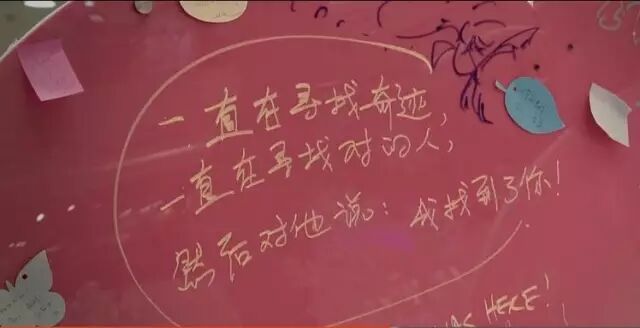 一直在寻找奇迹，
一直在寻找对的人，
然后对他说：我找到了你！
WAS HERE!